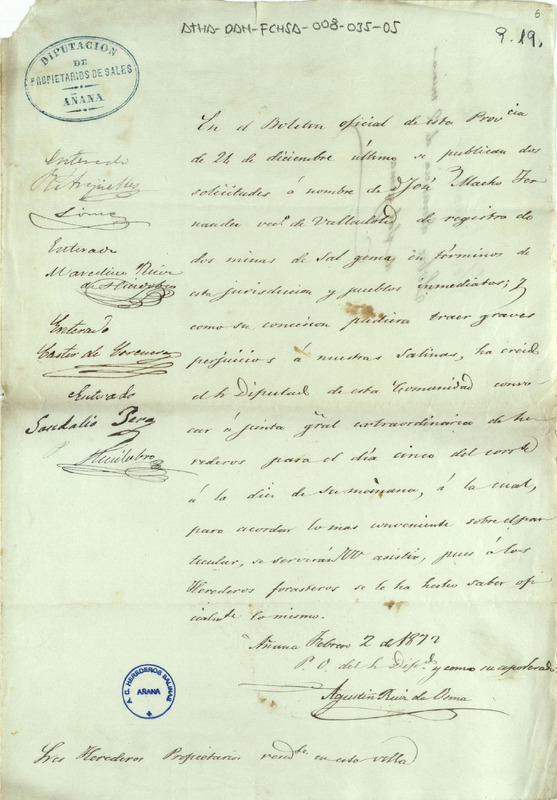 ATHA-DAH-FCHSA-008-035-05
6
9.19,
DIPUTACION
DE
PROPIETARIOS DE SALES
AÑANA
En el Boletin oficial de esta Provcia
de 24 de diciembre último se publican dos
solicitudes á nombre de D José Macho Fer
nandez vecº de Valladolid, de registro de
dos minas de Sal gema en términos de
esta jurisdicion y pueblos inmediatos; y
como su concesion pudiera traer graves
perjuicios á nuestras Salinas, ha creido
el Sr Diputado de esta Comunidad convo
car á junta gral extraordinaria de he
rederos para el dia cinco del corrte
á la diez de su mañana, á la cual,
para acordar lo mas conveniente sobre el par
ticular, se servirán VV asistir, pues á los
Herederos forasteros se le ha hecho saber ofi
cialmte lo mismo.
Añana Febrero 2 de 1872
P. O. del Sr Dipdo y como su apoderado
Agustin Ruiz de Osma
Enterado
Enterado
Marcelino Ruiz
Enterado
Castor de
Enterado
Sandalio
A. C. HEREDEROS SALINAS
AÑANA
Sres Herederos Propietarios residtes en esta villa